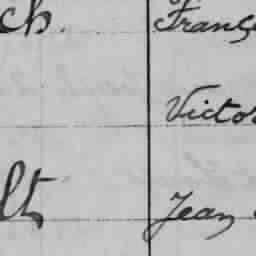 ch. Franç
Victor
lt Jean